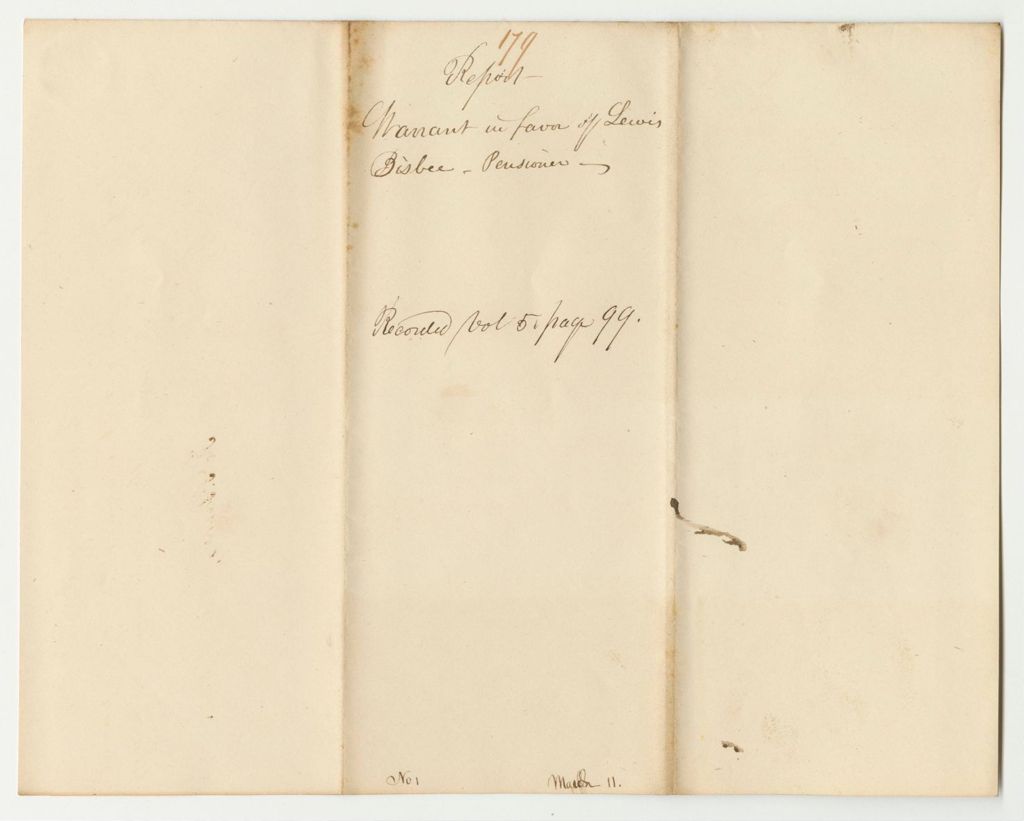 179
Report —
Warrant in favor of Lewis
Bisbee - Pensioner —
Recorded Vol 5, page 99.
No 1 March 11.